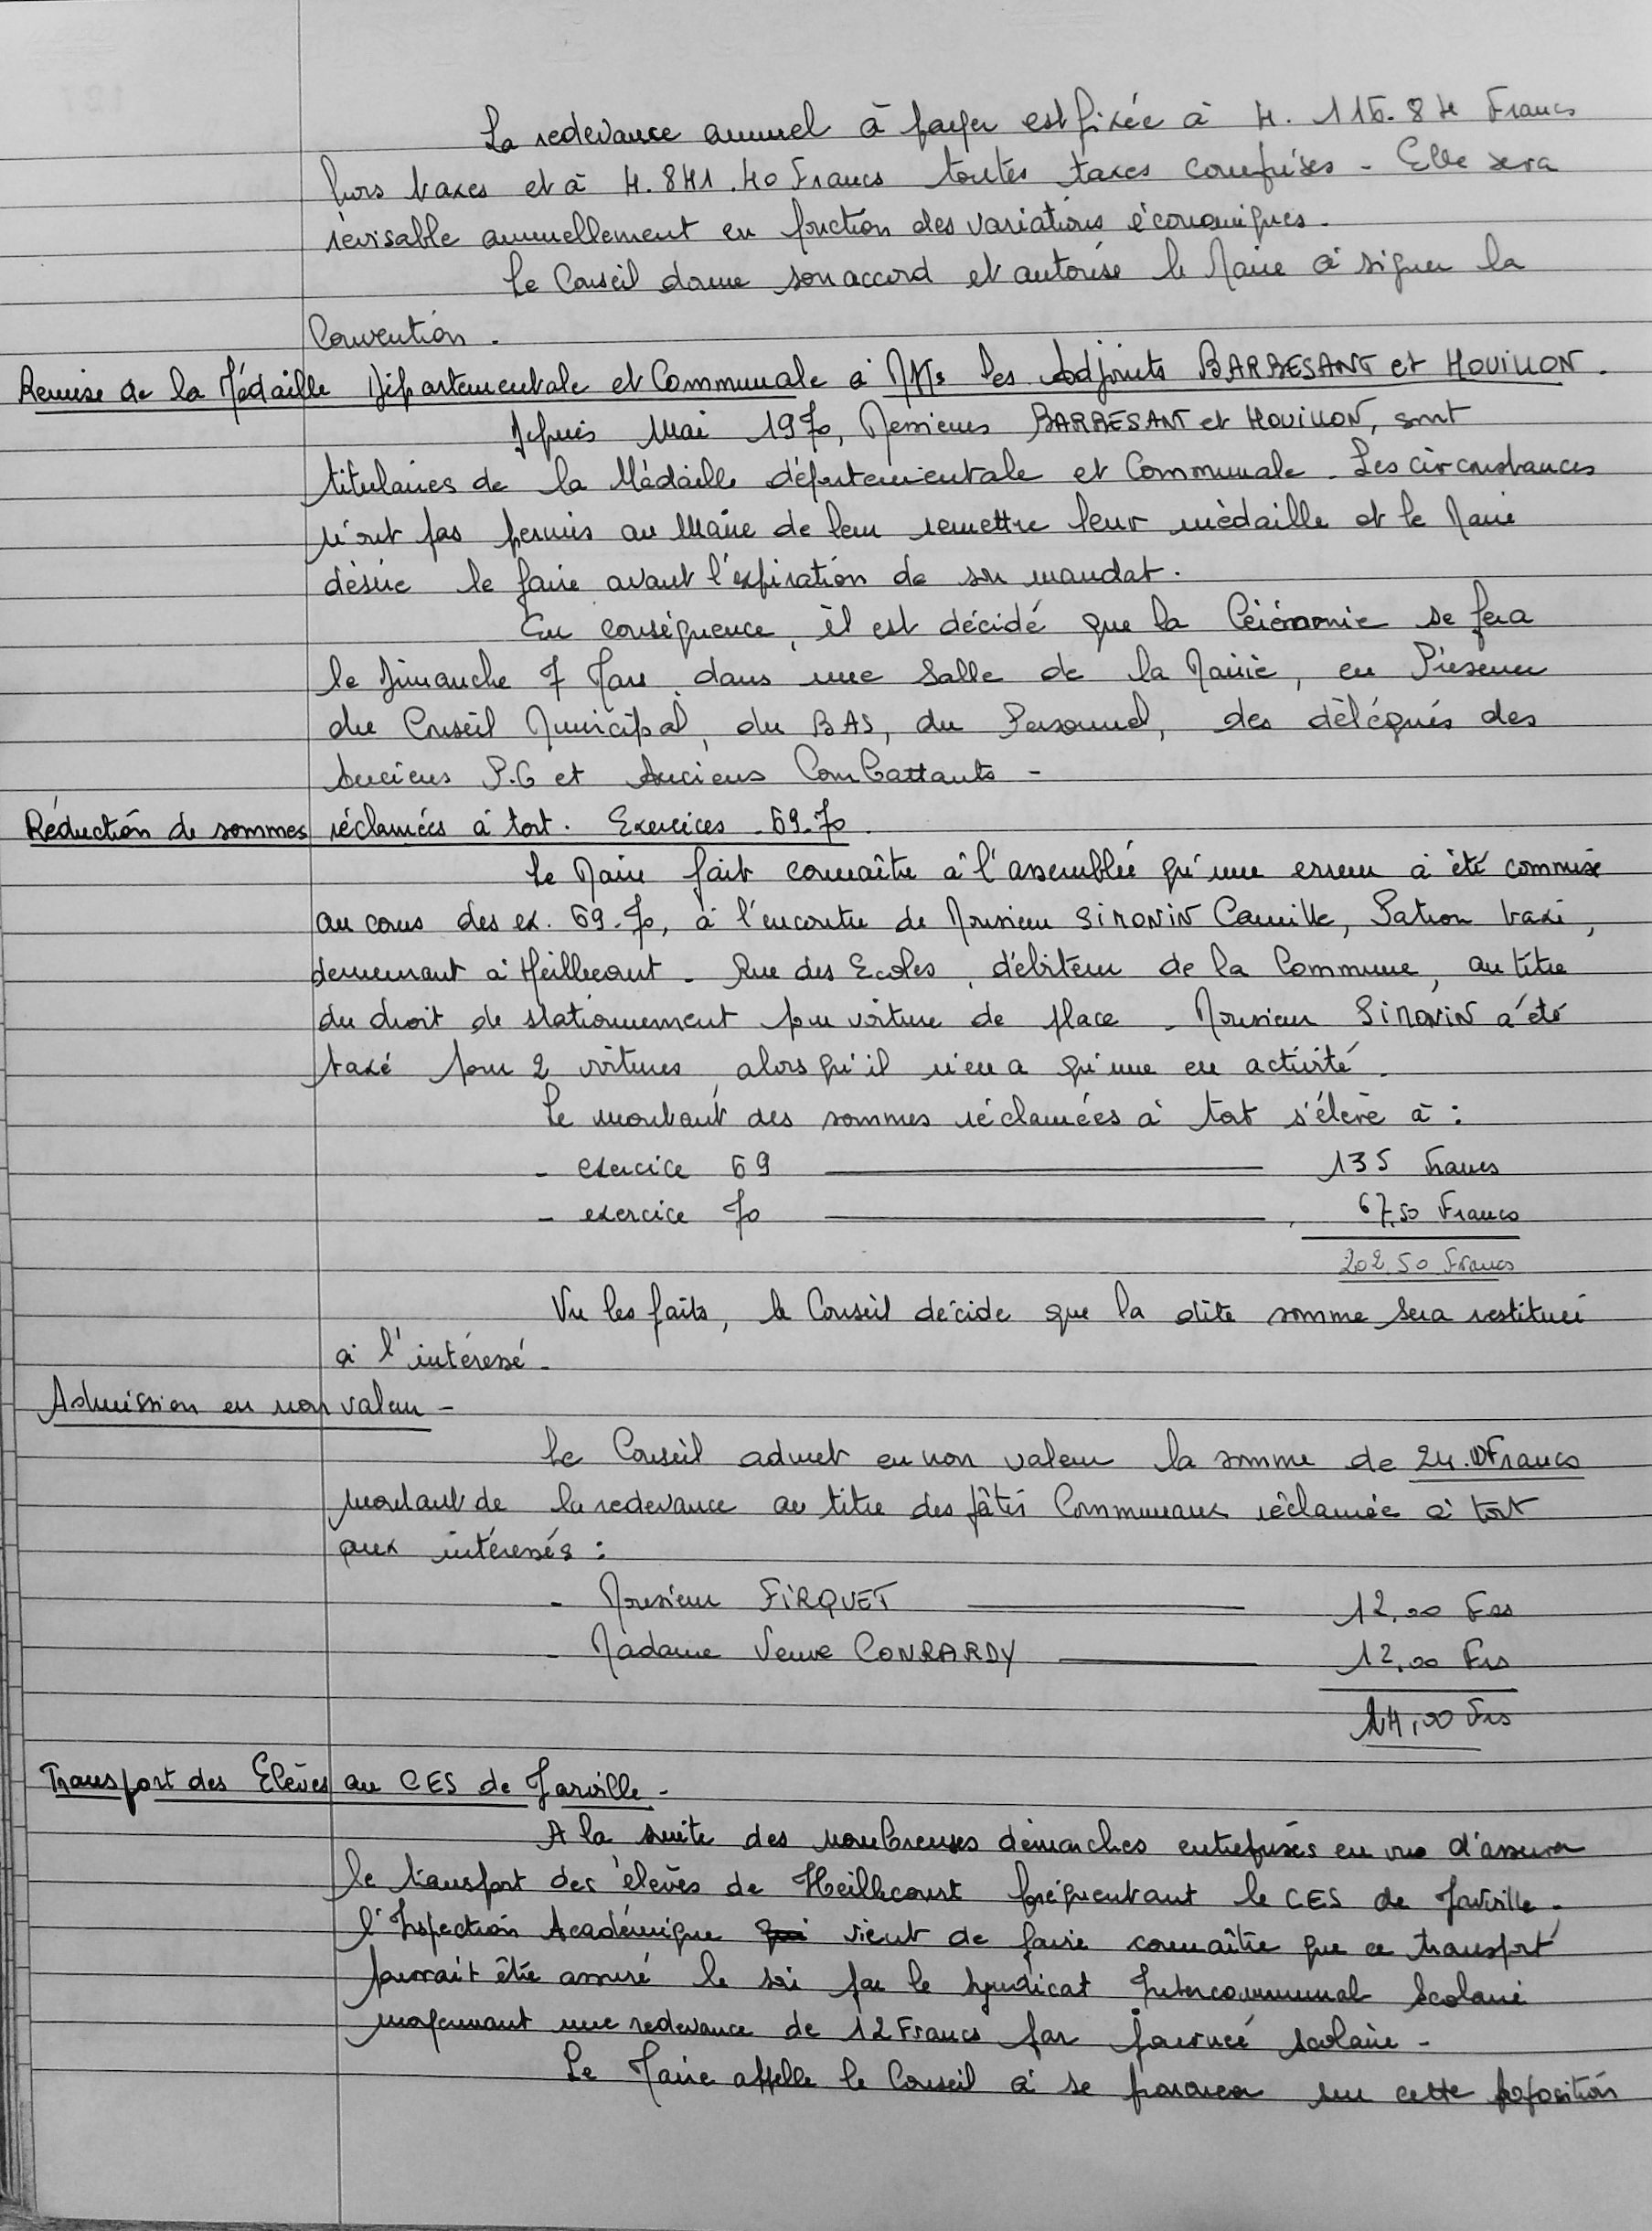 La redevance annuel à payer est fixée à 4.116.84 Francs
hors taxes et à 4.841.40 Francs toutes taxes comprises - Elle sera
révisable annuellement en fonction des variations économiques.
Le Conseil donne son accord et autorise le Maire à signer la
Convention.
Remise de la Médaille Départementale et Communale à MMs les Adjoints BARBESANT et HOUILLON.
Depuis Mai 1970, Messieurs BARBESANT et HOUILLON, sont
titulaires de la Médaille départementale et Communale. Les circonstances
n'ont pas permis au Maire de leur remettre leur médaille et le Maire
désire le faire avant l'expiration de son mandat.
En conséquence, il est décidé que la Cérémonie se fera
le Dimanche 7 Mars dans une Salle de la Mairie, en Présence
du Conseil Municipal, du BAS, du Personnel, des délégués des
Anciens P.G et Anciens Combattants -
Réduction de sommes réclamées à tort. Exercices - 69-70.
Le Maire fait connaître à l'assemblée qu'une erreur à été commise
au cours des ex. 69-70, à l'encontre de Monsieur SIMONIN Camille, Patron taxi,
demeurant à Heillecourt - Rue des Ecoles, débiteur de la Commune, au titre
du droit de stationnement pour voiture de place - Monsieur SIMONIN a été
taxé pour 2 voitures, alors qu'il n'en a qu'une en activité.
Le montant des sommes réclamées à tort s'élève à :
- exercice 69 135 Francs
- exercice 70 67,50 Francs
202,50 Francs
Vu les faits, le Conseil décide que la dite somme sera restituée
à l'intéressé -
Admission en non valeur -
Le Conseil admet en non valeur la somme de 24.00 Francs
montant de la redevance au titre des pâtis Communaux réclamée à tort
aux intéressés :
- Monsieur FIRQUET 12,00 Frs
- Madame Veuve CONRARDY 12,00 Frs
24,00 Frs
Transport des Elèves au CES de Jarville -
A la suite des nombreuses démarches entreprises en vue d'assurer
le transport des élèves de Heillecourt fréquentant le CES de Jarville -
l'Inspection Académique qui vient de faire connaître que ce transport
pourrait être assuré le soir par le Syndicat Intercommunal Scolaire
moyennant une redevance de 12 Francs par journée scolaire -
Le Maire appelle le Conseil à se prononcer sur cette proposition